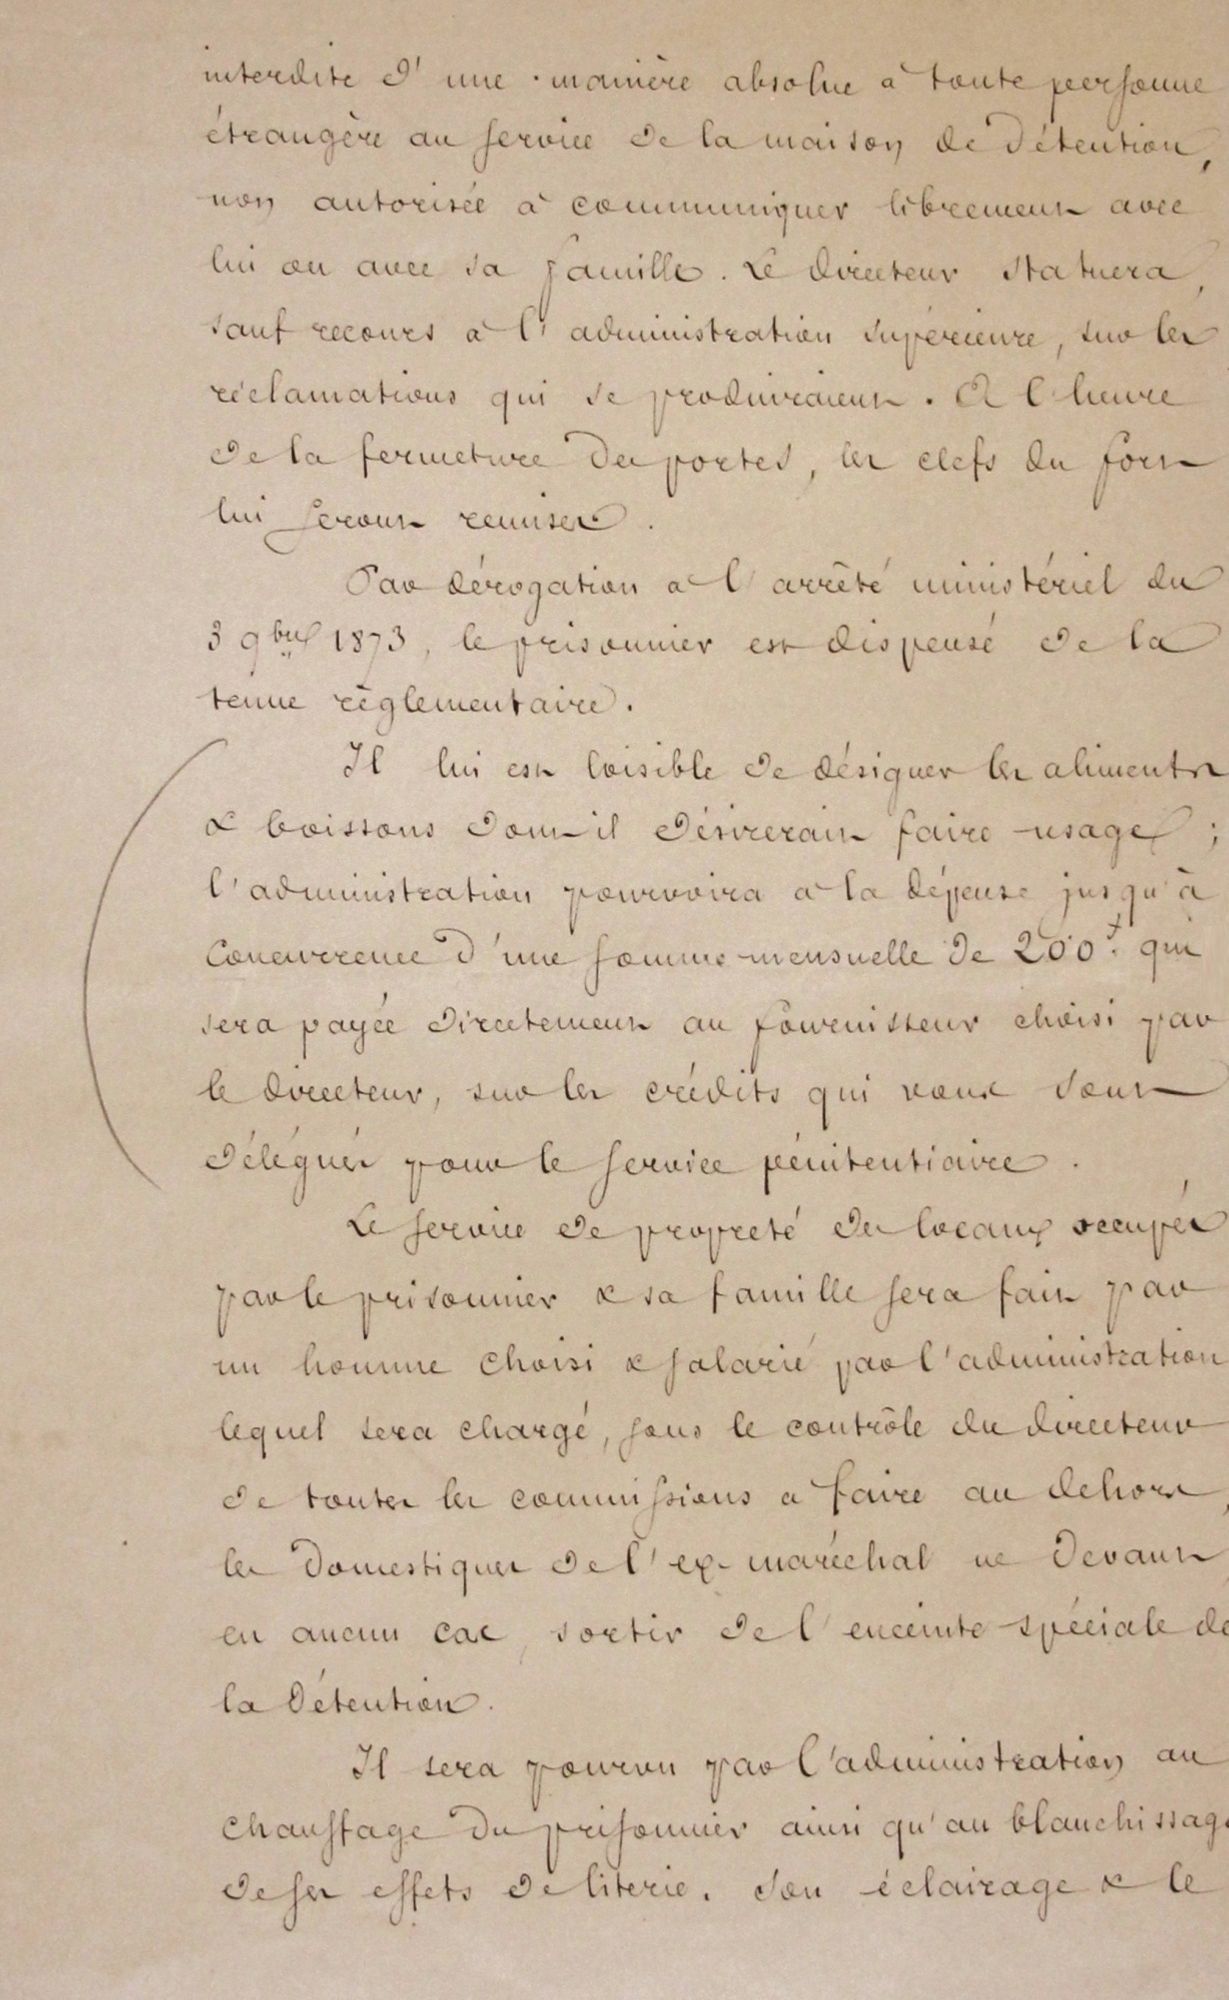 interdite d'une manière absolue à toute personne
étrangère au service de la maison de détention,
non autorisée à communiquer librement avec
lui ou avec sa famille. Le directeur statuera,
sauf recours à l'administration supérieure, sur les
réclamations qui se produiraient. A l'heure
de la fermeture des portes, les clefs du fort
lui seront remises.
Par dérogation à l'arrêté ministériel du
3 9bre 1873, le prisonnier est dispensé de la
tenue règlementaire.
Il lui est loisible de désigner les aliments
& boissons dont il désirerait faire usage ;
l'administration pourvoira à la dépense jusqu'à
concurrence d'une somme mensuelle de 200f. qui
sera payée directement au fournisseur choisi par
le directeur, sur les crédits qui vous sont
délégués pour le service pénitentiaire.
Le service de propreté des locaux occupés
par le prisonnier & sa famille sera fait par
un homme choisi & salarié par l'administration
lequel sera chargé, sous le contrôle du directeur
de toutes les commissions a faire au dehors,
les domestiques de l'ex-maréchal ne devant
en aucun cas, sortir de l'enceinte spéciale de
la détention.
Il sera pourvu par l'administration au
chauffage du prisonnier ainsi qu'au blanchissage
de ses effets de literie. Son éclairage & le